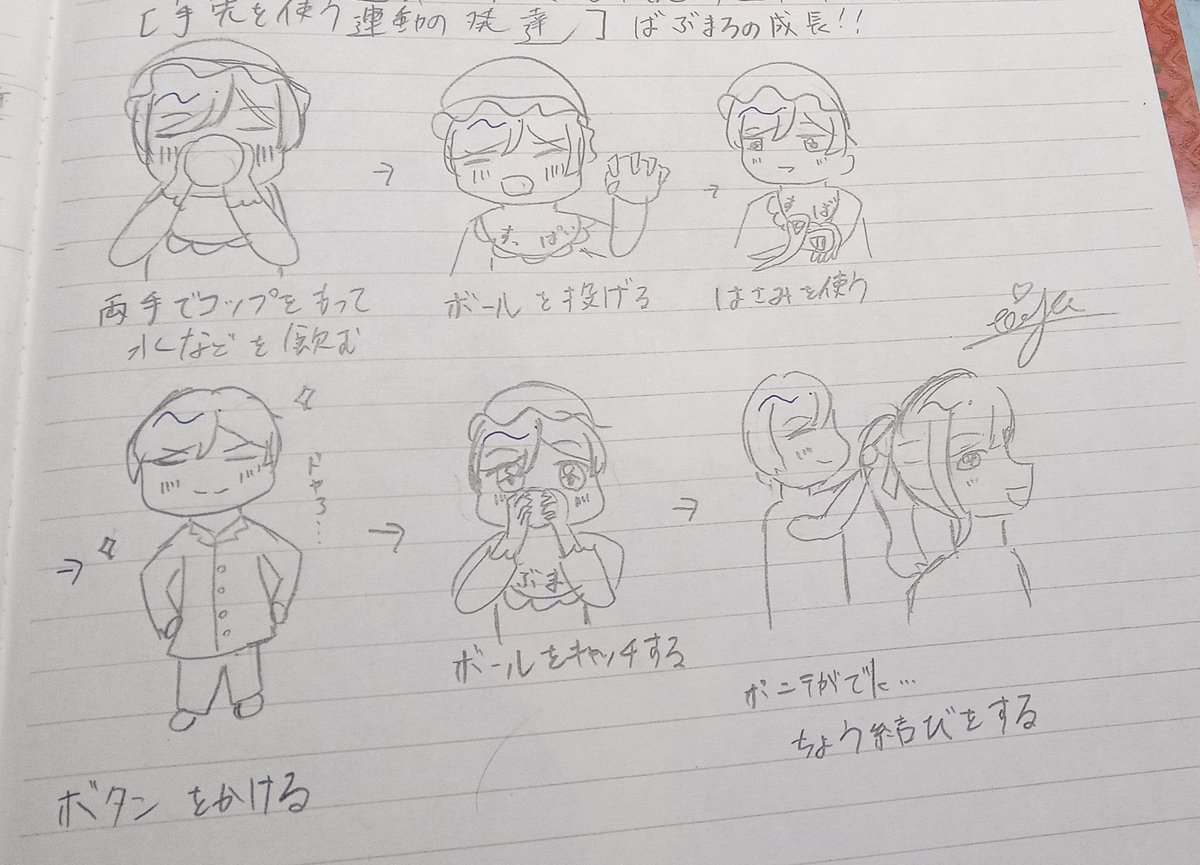 [手先を使う運動の発達] ばぶまろの成長!!
すっぱい
両手でコップをもって
水などを飲む
ボールを投げる
はさみを使う
ドヤろ...
ぶま
ボタンをかける
ボールをキャッチする
ちょう結びをする